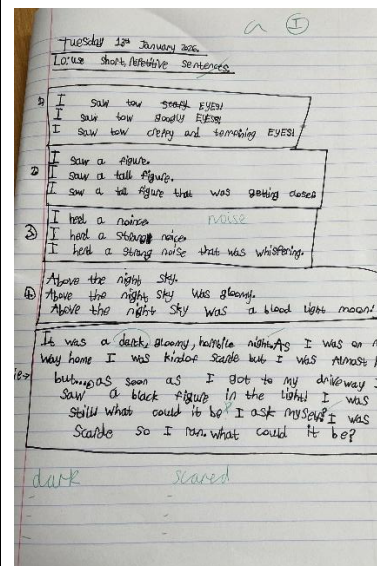 a I
Tuesday 13th January 2026.
Lo: use short, repetitive sentences.
1) I saw tow scary EYES!
I saw tow googly EYES!
I saw tow creepy and EYES!
2) I saw a figure.
I saw a tall figure.
I saw a tall figure that was getting closer
3) I herd a noice. noise
I herd a strang noice.
I herd a strang noise that was whispering.
4) Above the night sky.
Above the night sky was gloomy.
Above the night sky was a blood light moon!
It was a dark, gloomy, horrible night. As I was on
way home I was kindof scarde but I was Almost
but... as soon as I got to my driveway I
saw a black figure in the light! I was
still! What could it be? I ask myself? I was
scarde so I ran. what could it be?
dark scared